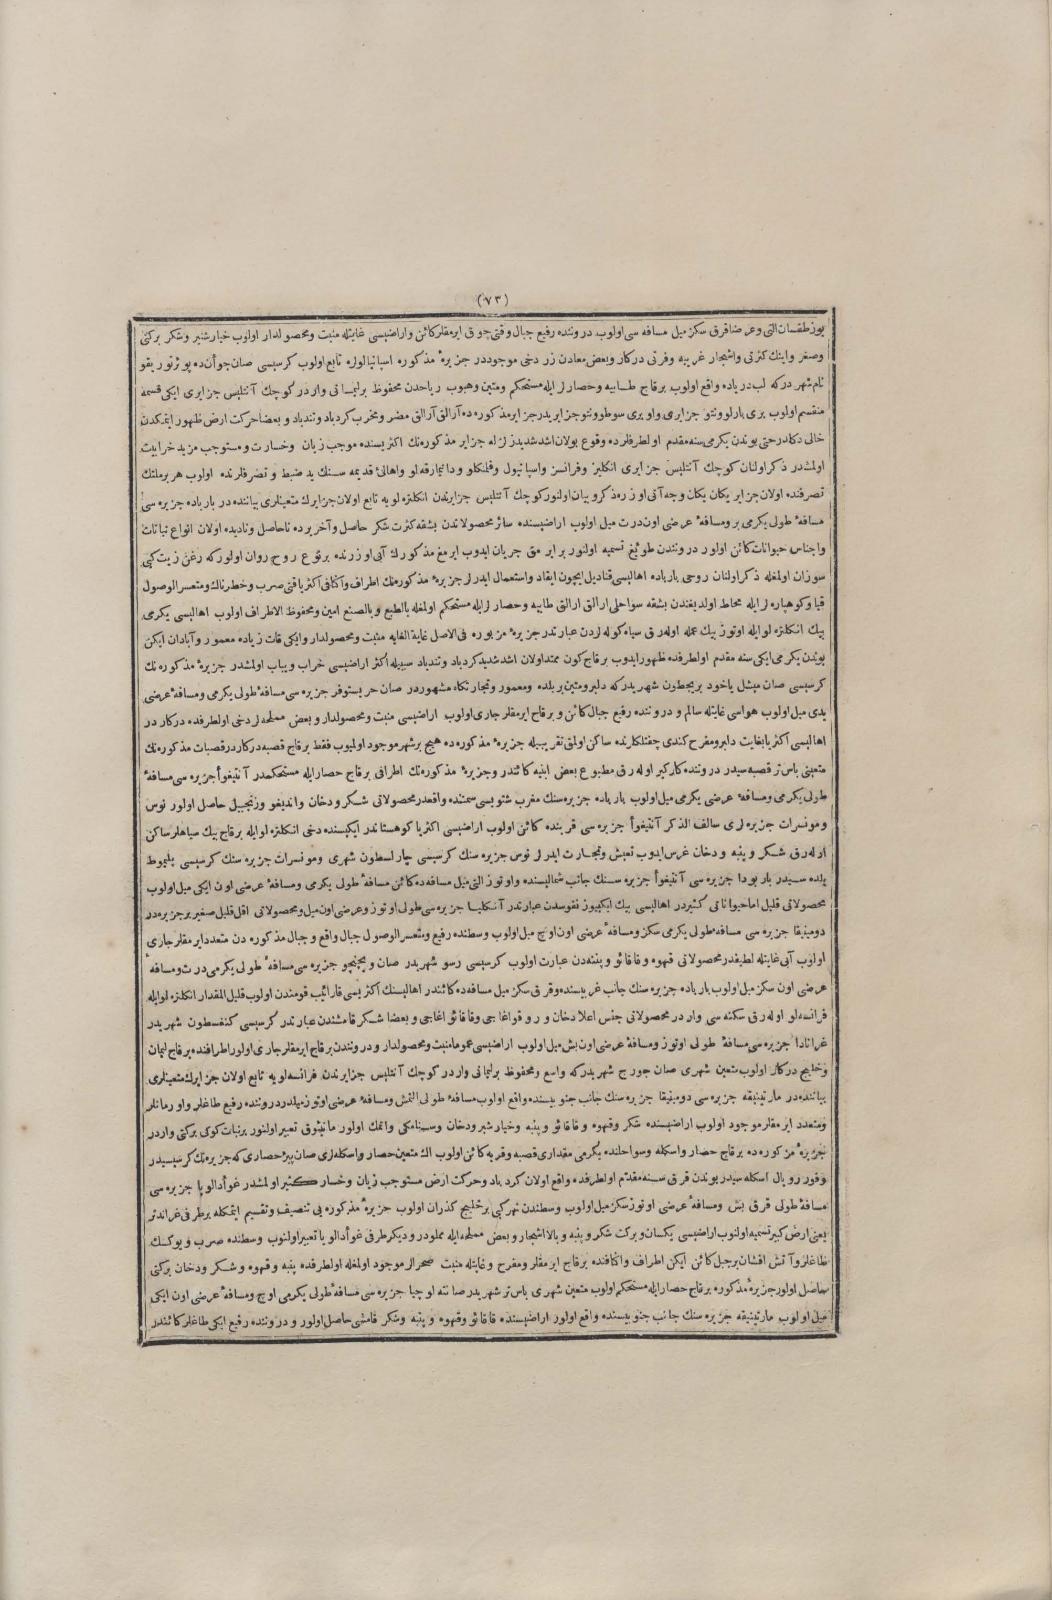 (٧٣)
يوز طقسان التى وعرضا قرق سكز ميل مسافه سى اولوب دروننده رفيع جبال وقتى چوق ايرمقلر كائن واراضيسى غايتله منبت ومحصولدار اولوب خيارشنبر وشكر بركتى
وصغر واينك كثرتى واشجار غريبه وفرتى دركار وبعض معادن زر دخى موجوددر جزيرهٔ مذكوره اسپانيالولره تابع اولوب كرسيسى صان جوأن ده پورتوريقو
نام شهردركه لب درياده واقع اولوب برقاچ طابيه وحصارلر ايله مستحكم ومتين وهبوب رياحدن محفوظ برليمانى واردر كوچك آنتليس جزايرى ايكى قسمه
منقسم اولوب برى بارلوونتو جزايرى وديرى سوطوونتو جزايريدر جزاير مذكوره ده آرالق آرالق مضر ومخرب كردباد وتندباد و بعضا حركت ارض ظهور ايتمكدن
خالى دكلدر حتى بوندن يكرمى سنه مقدم اولطرفلرده وقوع بولان اشد شديد زلزله جزاير مذكوره نك اكثريسنده موجب زيان وخسارت و مستوجب مزيد خرابيت
اولمشدر ذكر اولنان كوچك آنتليس جزايرى انكليز وفرانسز واسپانيول وفلمنكلو ودانيمارقه لو واهالئ قديمه سنك يد ضبط و تصرفلرنده اولوب هر برملتك
تصرفنده اولان جزاير يكان يكان وجه آتى اوزره ذكر وبيان اولنور كوچك آنتليس جزايرندن انكلتره لويه تابع اولان جزايرك متعينلرى بياننده در بارباده جزيره سى
مسافهٔ طولى يكرمى بر ومسافهٔ عرضى اون درت ميل اولوب اراضيسنده سائر محصولاتدن بشقه كثرت شكر حاصل وآخر يرده ناحاصل وناديده اولان انواع نباتات
واجناس حيوانات كائن اولور دروننده طوئيغ تسميه اولنور بر ايرمق جريان ايدوب ايرمغ مذكورك آبى اوزرنده برنوع روح روان اولوركه رغن زيت كبى
سوزان اولمغله ذكر اولنان روحى بارباده اهاليسى قناديل ايچون ايقاد واستعمال ايدرلر جزيرهٔ مذكوره نك اطراف واكنافى اكثر ياقتى صرب وخطرناك ومتعسر الوصول
قيا وكوهپاره لر ايله محاط اولديغندن بشقه سواحلى ارالق ارالق طابيه وحصارلر ايله مستحكم اولمغله بالطبع وبالصنع امين ومحفوظ الاطراف اولوب اهاليسى يكرمى
بيك انكلتره لو ايله اوتوز بيك عمله اوله رق سياه كوله لردن عبارتدر جزيرهٔ مزبوره فى الاصل غاية الغايه منبت ومحصولدار وايكى قات زياده معمور وآبادان ايكن
بوندن يكرمى ايكى سنه مقدم اولطرفده ظهور ايدوب برقاچ كون ممتد اولان اشد شديد كردباد وتندباد سببيله اكثر اراضيسى خراب ويباب اولمشدر جزيرهٔ مذكوره نك
كرسيسى صان ميشل ياخود بريجطون شهريدركه دلبر ومتين بر بلده ومعمور وتجارتكاه مشهوردر صان خريستوفر جزيره سى مسافهٔ طولى يكرمى ومسافهٔ عرضى
يدى ميل اولوب هواسى غايتله سالم و دروننده رفيع جبال كائن و برقاچ ايرمقلر جارى اولوب اراضيسى منبت ومحصولدار و بعض مملحه لر دخى اولطرفده دركاردر
اهاليسى اكثريا بغايت دلبر ومفرح كندى چفتلكلرنده ساكن اولمق تقريبيله جزيرهٔ مذكوره ده هيچ بر شهر موجود اولميوب فقط برقاچ قصبه دركاردر قصبات مذكوره نك
متعينى باس تر قصبه سيدر دروننده كاركير اوله رق مطبوع بعض ابنيه كائندر وجزيرهٔ مذكوره نك اطرافى برقاچ حصار ايله مستحكمدر آنتيغوأ جزيره سى مسافهٔ
طولى يكرمى ومسافهٔ عرضى يكرمى ميل اولوب بارباده جزيره سنك مغرب شتويسى سمتنده واقعدر محصولاتى شكر ودخان وانديغو وزنجبيل حاصل اولور نوس
ومونسرات جزيره لرى سالف الذكر آنتيغوأ جزيره سى قربنده كائن اولوب اراضيسى اكثريا كوهستاندر ايكيسنده دخى انكلتره لو ايله برقاچ بيك سياهلر ساكن
اوله رق شكر و پنبه ودخان غرس ايدوب تعيش وتجارت ايدرلر نوس جزيره سنك كرسيسى چارلسطون شهرى ومونسرات جزيره سنك كرسيسى پليموط
بلده سيدر باربودا جزيره سى آنتيغوأ جزيره سنك جانب شماليسنده واوتوز التى ميل مسافه ده كائن مسافهٔ طولى يكرمى ومسافهٔ عرضى اون ايكى ميل اولوب
محصولاتى قليل اما حيواناتى كثيردر اهاليسى بيك ايكيوز نفوسدن عبارتدر آنكليا جزيره سى طولى اوتوز وعرضى اون ميل ومحصولاتى اقل قليل صغير بر جزيره در
دومنيقا جزيره سى مسافهٔ طولى يكرمى سكز ومسافهٔ عرضى اون اوچ ميل اولوب وسطنده رفيع ومتعسر الوصول جبال واقع و جبال مذكوره دن متعدد ايرمقلر جارى
اولوب آبى غايتله لطيفدر محصولاتى قهوه وقاقائو و پنبه دن عبارت اولوب كرسيسى رسو شهريدر صان ويچنچو جزيره سى مسافهٔ طولى يكرمى درت ومسافهٔ
عرضى اون سكز ميل اولوب بارباده جزيره سنك جانب غربيسنده وقرق سكز ميل مسافه ده كائندر اهاليسنك اكثريسى قارائيب قومندن اولوب قليل المقدار انكلتره لو ايله
فرانسه لو اوله رق سكنه سى واردر محصولاتى جنس اعلا دخان و روقو اغاجى وقاقائو اغاجى و بعضا شكر قامشندن عبارتدر كرسيسى كنغسطون شهريدر
غرانادا جزيره سى مسافهٔ طولى اوتوز ومسافهٔ عرضى اون بش ميل اولوب اراضيسى عموما منبت ومحصولدار و دروندن برقاچ ايرمقلر جارى اولور اطرافنده برقاچ ليمان
وخليج دركار اولوب متعين شهرى صان جورج شهريدركه واسع ومحفوظ برليمانى واردر كوچك آنتليس جزايرندن فرانسه لويه تابع اولان جزايرك متعينلرى
بياننده در مارتينيقه جزيره سى دومنيقا جزيره سنك جانب جنوبيسنده واقع اولوب مسافهٔ طولى التمش ومسافهٔ عرضى اوتوز ميلدر دروننده رفيع طاغلر واورمانلر
ومتعدد ايرمقلر موجود اولوب اراضيسنده شكر وقهوه وقاقائو و پنبه وخيارشنبر ودخان وسنامكى واتمك اولور مانيوق تعبير اولنور بر نبات كوكى بركتى واردر
جزيرهٔ مزكوره ده برقاچ حصار واسكله وسواحلنده يكرمى مقدارى قصبه وقريه كائن اولوب اك متعين حصار واسكله لرى صان پيز حصارى كه جزيره نك كرسيسيدر
وفور رويال اسكله سيدر بوندن قرق سنه مقدم اولطرفده واقع اولان كردباد وحركت ارض مستوجب زيان وخسار كثير اولمشدر غوأدالوپا جزيره سى
مسافهٔ طولى قرق بش ومسافهٔ عرضى اوتوز سكز ميل اولوب وسطندن نهر كبى بر خليج كذران اولوب جزيرهٔ مذكوره يى تنصيف وتقسيم ايتمكله بر طرفى غراندتر
يعنى ارض كبير تسميه اولنوب اراضيسى يكسان وبركت شكر و پنبه و بالا اشجار و بعض مملحه ايله مملودر وديكر طرفى غوأدالوپا تعبير اولنوب وسطنده صرب ويوكسك
طاغلر وآتش افشان بر جبل كائن ايكن اطراف واكنافنده برقاچ ايرمقلر ومفرح وغايتله منبت صحرالر موجود اولمغله اولطرفده پنبه وقهوه و شكر ودخان بركتى
حاصل اولور جزيرهٔ مذكوره برقاچ حصار ايله مستحكم اولوب متعين شهرى باس تر شهريدر صانته لوچيا جزيره سى مسافهٔ طولى يكرمى اوچ ومسافهٔ عرضى اون ايكى
ميل اولوب مارتينيقه جزيره سنك جانب جنوبيسنده واقع اولور اراضيسنده قاقائو وقهوه و پنبه وشكر قامشى حاصل اولور و دروننده رفيع ايكى طاغلر كائندر